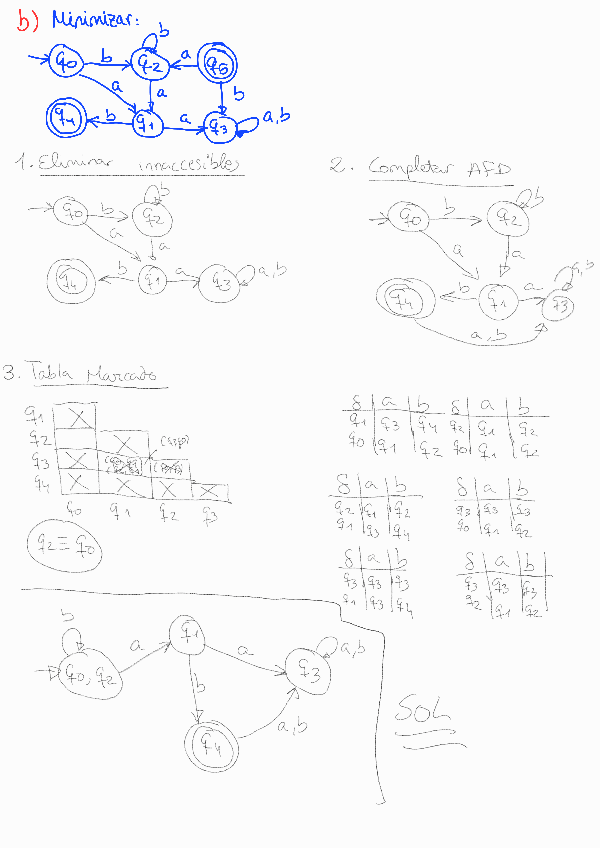 b) Minimizar:
q0 b q2 b a q5
a a b
q4 b q1 a q3 a,b
1. Eliminar innaccesibles
2. Completar AFD
q0 b q2 b
a a
q4 b q1 a q3 a,b
q0 b q2 b
a a
q4 b q1 a q3 a,b
a,b
3. Tabla Marcado
q1 X
q2 X
q3 X
q4 X X X X
q0 q1 q2 q3
q2 ≡ q0
δ a b
q1 q3 q4
q0 q1 q2
δ a b
q2 q1 q2
q0 q1 q2
δ a b
q2 q1 q2
q1 q3 q4
δ a b
q3 q3 q3
q0 q1 q2
δ a b
q3 q3 q3
q1 q3 q4
δ a b
q3 q3 q3
q2 q1 q2
b
q0, q2 a q1 a q3 a,b
b
q4 a,b
SOL